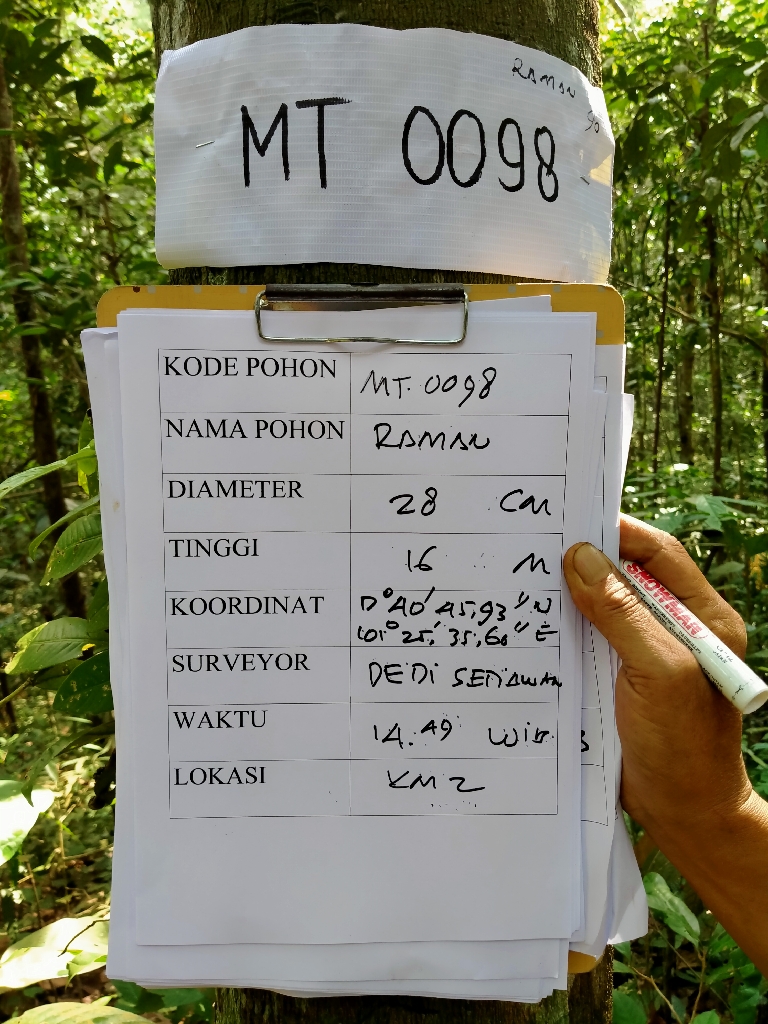 RAMAN
90
MT 0098
KODE POHON MT. 0098
NAMA POHON RAMAN
DIAMETER 28 Cm
TINGGI 16 M
KOORDINAT 0° 40' 45,93" N
101° 25, 35,60" E
SURVEYOR DEDI SETIAWAN
WAKTU 14.49 WIB
LOKASI KM 2
SNOWMAN